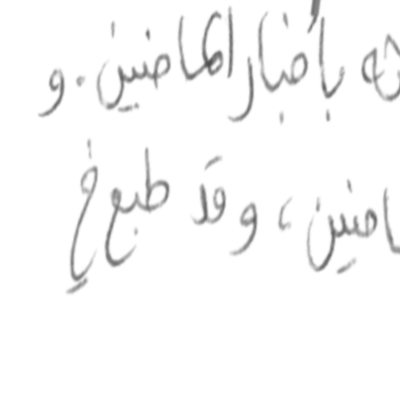 بأخبار الماضين. و
، وقد طبع في